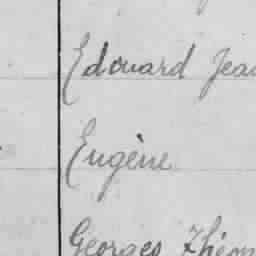 Edouard Jean
Eugène
Georges Théop